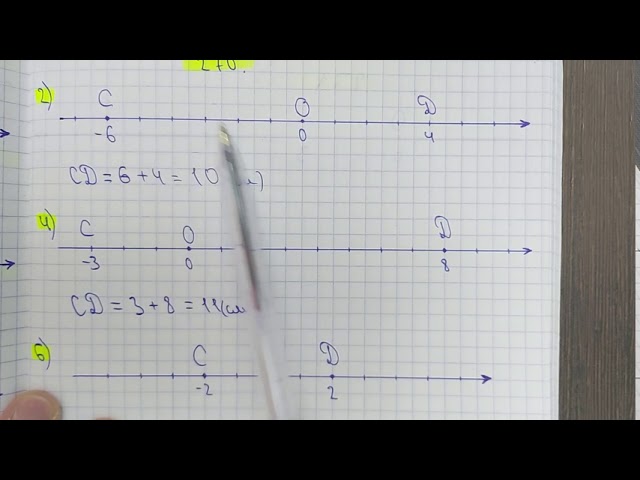 2)
C O D
-6 0 4
CD = 6 + 4 = 10
4)
C O D
-3 0 8
CD = 3 + 8 = 11(см
6)
C D
-2 2